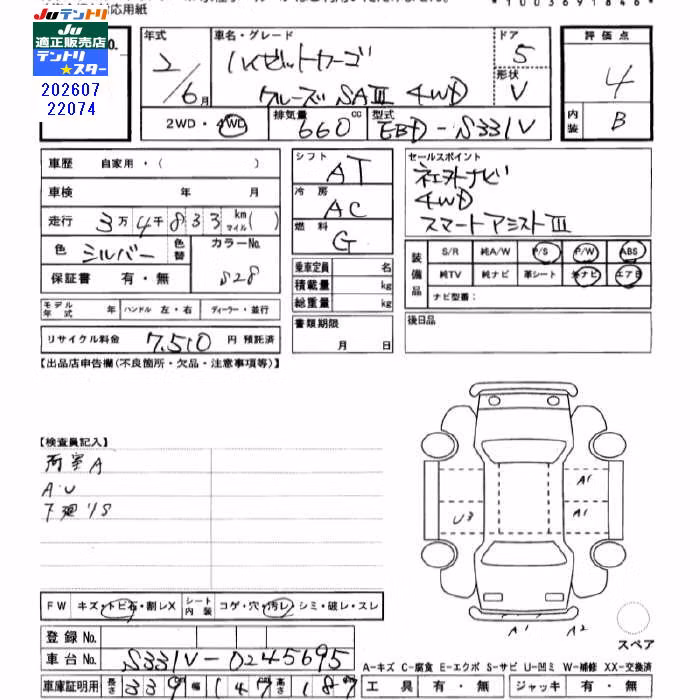 JUテントリ
JU
適正販売店
テントリ
★スター
202607
22074
対応用紙
*1003691846*
年式
2/6月
車名・グレード
ハイゼットカーゴ
クルーズSAⅢ 4WD
ドア
5
形状
V
評価点
4
内装
B
2WD・4WD
排気量
660cc
型式
EBD-S331V
車歴 自家用・( )
車検 年 月
走行 3万4千833 km マイル( )
色 シルバー 色替 カラーNo. S28
保証書 有・無
モデル年式 年 ハンドル 左・右 ディーラー・並行
リサイクル料金 7,510 円 預託済
シフト
AT
冷房
AC
燃料
G
乗車定員 名
積載量 kg
総重量 kg
書類期限
月 日
セールスポイント
社外ナビ
4WD
スマートアシストⅢ
装備品
S/R 純A/W P/S P/W ABS
純TV 純ナビ 革シート ナビ エアB
ナビ型番:
後日品
【出品店申告欄(不良箇所・欠品・注意事項等)】
【検査員記入】
荷室A
A・U
下廻りS
A1
A1
U3
A1
A2
スペア
FW キズ・トビ石・割レX シート内装 コゲ・穴・汚レ・シミ・破レ・スレ
登録No.
車台No. S331V-0245695
車庫証明用 長さ 339 幅 147 高さ 187
A-キズ C-腐食 E-エクボ S-サビ U-凹ミ W-補修 XX-交換済
工具 有・無 ジャッキ 有・無